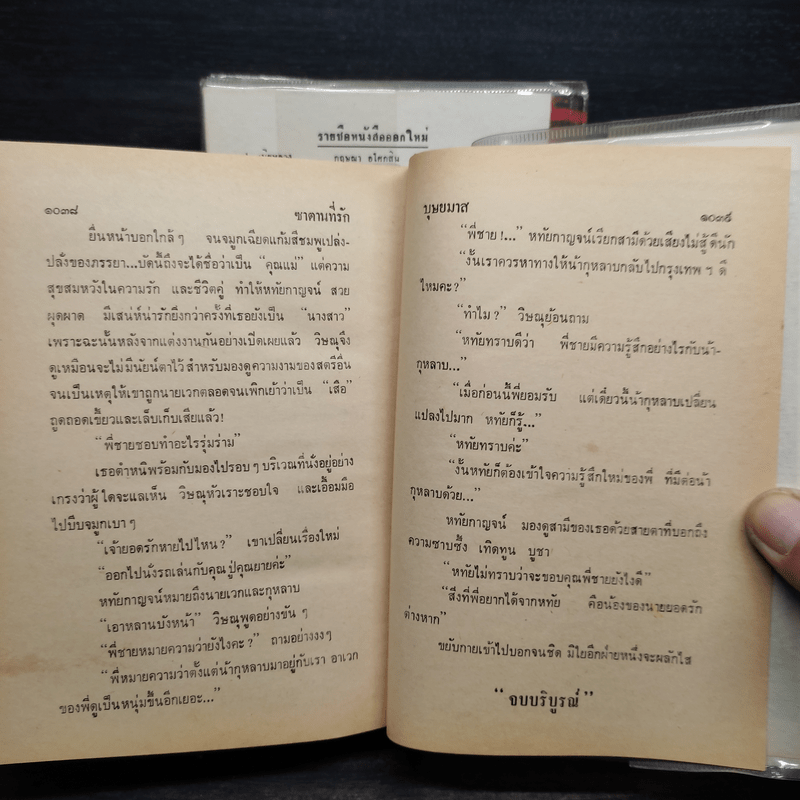 รายชื่อหนังสือออกใหม่
กฤษณา อโศกสิน
๑๐๓๘
ซาตานที่รัก
ยื่นหน้าบอกใกล้ ๆ จนจมูกเฉียดแก้มสีชมพูเปล่ง-
ปลั่งของภรรยา...บัดนี้ถึงจะได้ชื่อว่าเป็น “คุณแม่” แต่ความ
สุขสมหวังในความรัก และชีวิตคู่ ทำให้หทัยกาญจน์ สวย
ผุดผาด มีเสน่ห์น่ารักยิ่งกว่าครั้งที่เธอยังเป็น “นางสาว”
เพราะฉะนั้นหลังจากแต่งงานกันอย่างเปิดเผยแล้ว วิษณุจึง
ดูเหมือนจะไม่มีนัยน์ตาไว้ สำหรับมองดูความงามของสตรีอื่น
จนเป็นเหตุให้เขาถูกนายเวกตลอดจนเพิกเย้าว่าเป็น “เสือ”
ถูกถอดเขี้ยวและเล็บเก็บเสียแล้ว!
“พี่ชายชอบทำอะไรรุ่มร่าม”
เธอตำหนิพร้อมกับมองไปรอบ ๆ บริเวณที่นั่งอยู่อย่าง
เกรงว่าผู้ใดจะแลเห็น วิษณุหัวเราะชอบใจ และเอื้อมมือ
ไปบีบจมูกเบา ๆ
“เจ้ายอดรักหายไปไหน?” เขาเปลี่ยนเรื่องใหม่
“ออกไปนั่งรถเล่นกับคุณปู่คุณยายค่ะ”
หทัยกาญจน์หมายถึงนายเวกและกุหลาบ
“เอาหลานบังหน้า” วิษณุพูดอย่างขัน ๆ
“พี่ชายหมายความว่ายังไงคะ?” ถามอย่างงง ๆ
“พี่หมายความว่าตั้งแต่น้ากุหลาบมาอยู่กับเรา อาเวก
ของพี่ดูเป็นหนุ่มขึ้นอีกเยอะ...”
บุษยมาส
๑๐๓๙
“พี่ชาย !...” หทัยกาญจน์เรียกสามีด้วยเสียงไม่สู้ดีนัก
“งั้นเราควรหาทางให้น้ากุหลาบกลับไปกรุงเทพ ฯ ดี
ไหมคะ?”
“ทำไม?” วิษณุย้อนถาม
“หทัยทราบดีว่า พี่ชายมีความรู้สึกอย่างไรกับน้า-
กุหลาบ...”
“เมื่อก่อนนี้พี่ยอมรับ แต่เดี๋ยวนี้น้ากุหลาบเปลี่ยน
แปลงไปมาก หทัยก็รู้...”
“หทัยทราบค่ะ”
“งั้นหทัยก็ต้องเข้าใจความรู้สึกใหม่ของพี่ ที่มีต่อน้า
กุหลาบด้วย...”
หทัยกาญจน์ มองดูสามีของเธอด้วยสายตาที่บอกถึง
ความซาบซึ้ง เทิดทูน บูชา
“หทัยไม่ทราบว่าจะขอบคุณพี่ชายยังไงดี”
“สิ่งที่พี่อยากได้จากหทัย คือน้องของนายยอดรัก
ต่างหาก”
ขยับกายเข้าไปบอกจนชิด มิไยอีกฝ่ายหนึ่งจะผลักไส
“จบบริบูรณ์”